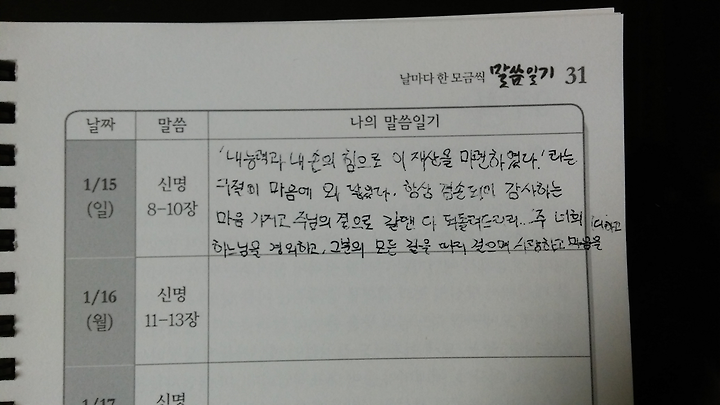 날마다 한 모금씩 말씀일기 31
날짜 말씀 나의 말씀일기
1/15
(일)
신명
8-10장
'내 능력과 내 손의 힘으로 이 재산을 마련하였다.' 라는
구절이 마음에 와 닿았다. 항상 겸손되이 감사하는
마음 가지고 주님의 곁으로 갈땐 다 되돌려드리리... 주 너희
하느님을 경외하고, 그분의 모든 길을 따라 걸으며 사랑하고 마음을 다하고
1/16
(월)
신명
11-13장
1/17
신명